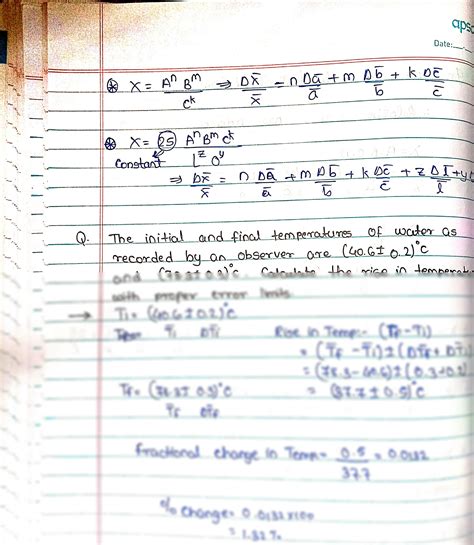 apsa
Date:
⊛ X = AⁿBᵐ/Cᵏ ⇒ DX̄/X̄ = n Dā/ā + m Db̄/b̄ + k Dc̄/c̄
⊛ X = 25 AⁿBᵐCᵏ/lᶻ Oʸ
Constant
⇒ DX̄/X̄ = n Dā/ā + m Db̄/b̄ + k Dc̄/c̄ + z Dl̄/l̄ + y
Q. The initial and final temperatures of water as
recorded by an observer are (40.6 ± 0.2)°C
and (78.3 ± 0.3)°C. Calculate the rise in temperat
with proper error limits.
→ Ti = (40.6 ± 0.2)°C
T̄i DT̄i Rise in Temp:- (TF - Ti)
= (T̄F - T̄i) ± (DT̄F + DT̄i)
= (78.3 - 40.6) ± (0.3 + 0.2)
TF = (78.3 ± 0.3)°C = (37.7 ± 0.5)°C
T̄F DT̄F
fractional change in Temp = 0.5/37.7 = 0.0132
% change = 0.0132 × 100
= 1.32 %